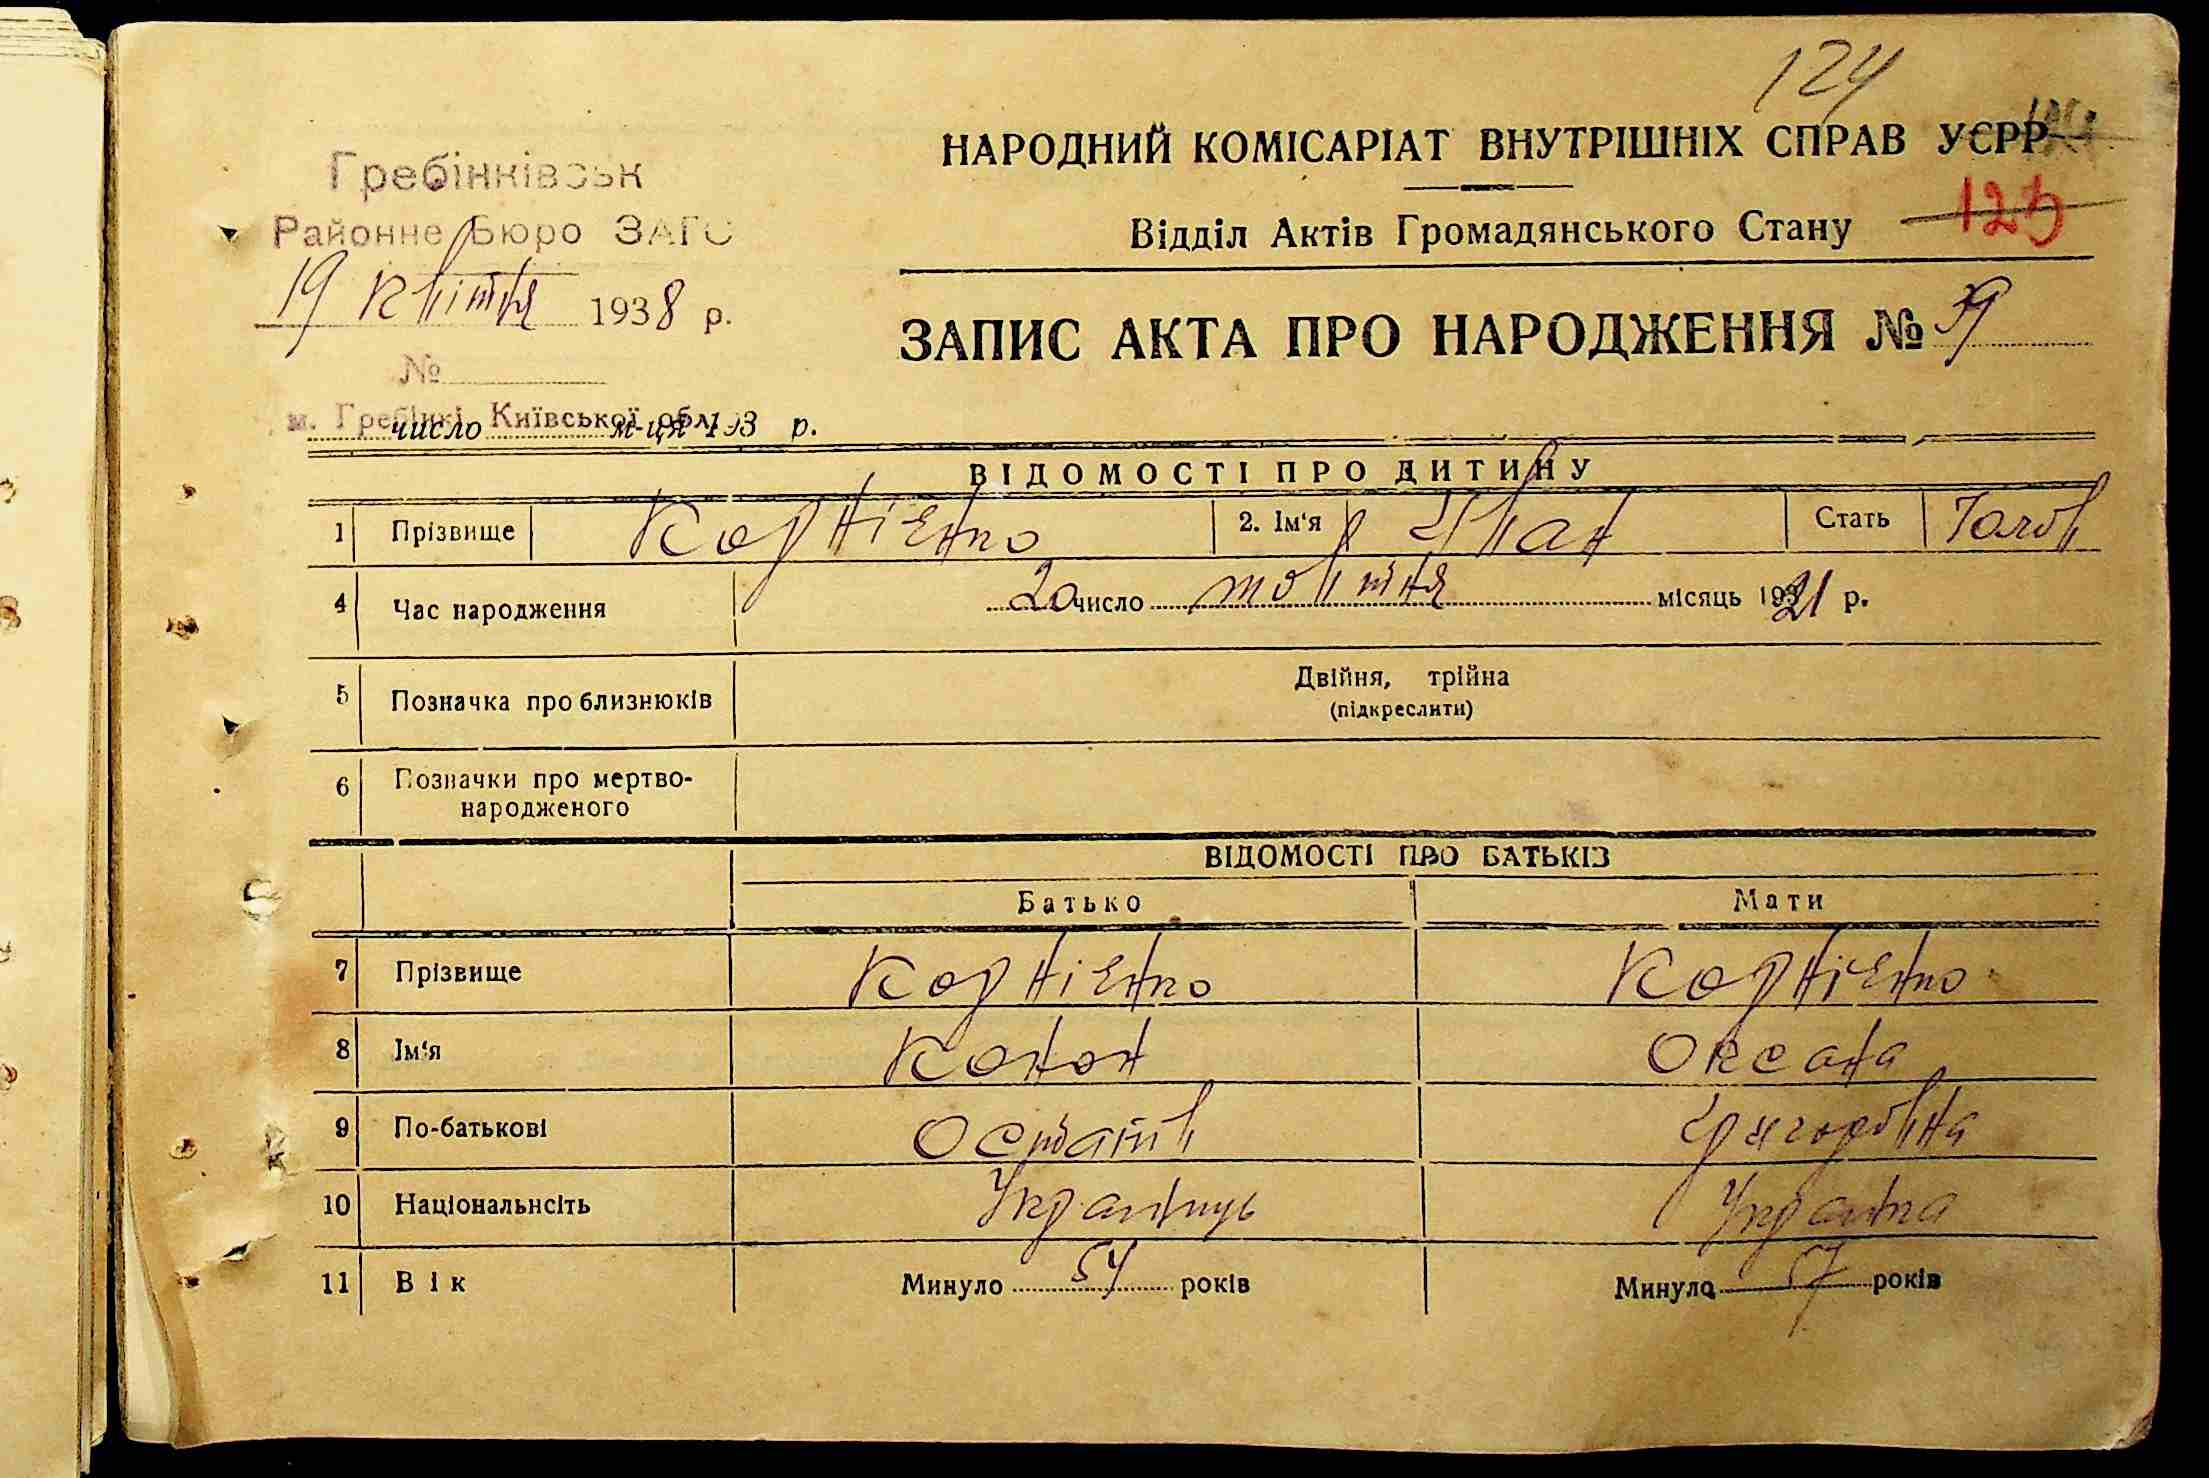 124
НАРОДНИЙ КОМІСАРІАТ ВНУТРІШНІХ СПРАВ УСРР
Гребінківськ
Районне Бюро ЗАГС
Відділ Актів Громадянського Стану
123
19 квітня 1938 р.
ЗАПИС АКТА ПРО НАРОДЖЕННЯ № 39
№
м. Гребінкі, Київської обл.
число м-ця 193 р.
ВІДОМОСТІ ПРО ДИТИНУ
1 Прізвище Корнієнко 2. Ім'я Іван Стать Чолов
4 Час народження 20 число жовтня місяць 1921 р.
5 Позначка про близнюків Двійня, трійна
(підкреслити)
6 Позначки про мертво-
народженого
ВІДОМОСТІ ПРО БАТЬКІВ
Батько Мати
7 Прізвище Корнієнко Корнієнко
8 Ім'я Конон Оксана
9 По-батькові Остапів Григорівна
10 Національнсіть Українець Українка
11 Вік Минуло 54 років Минуло 57 років